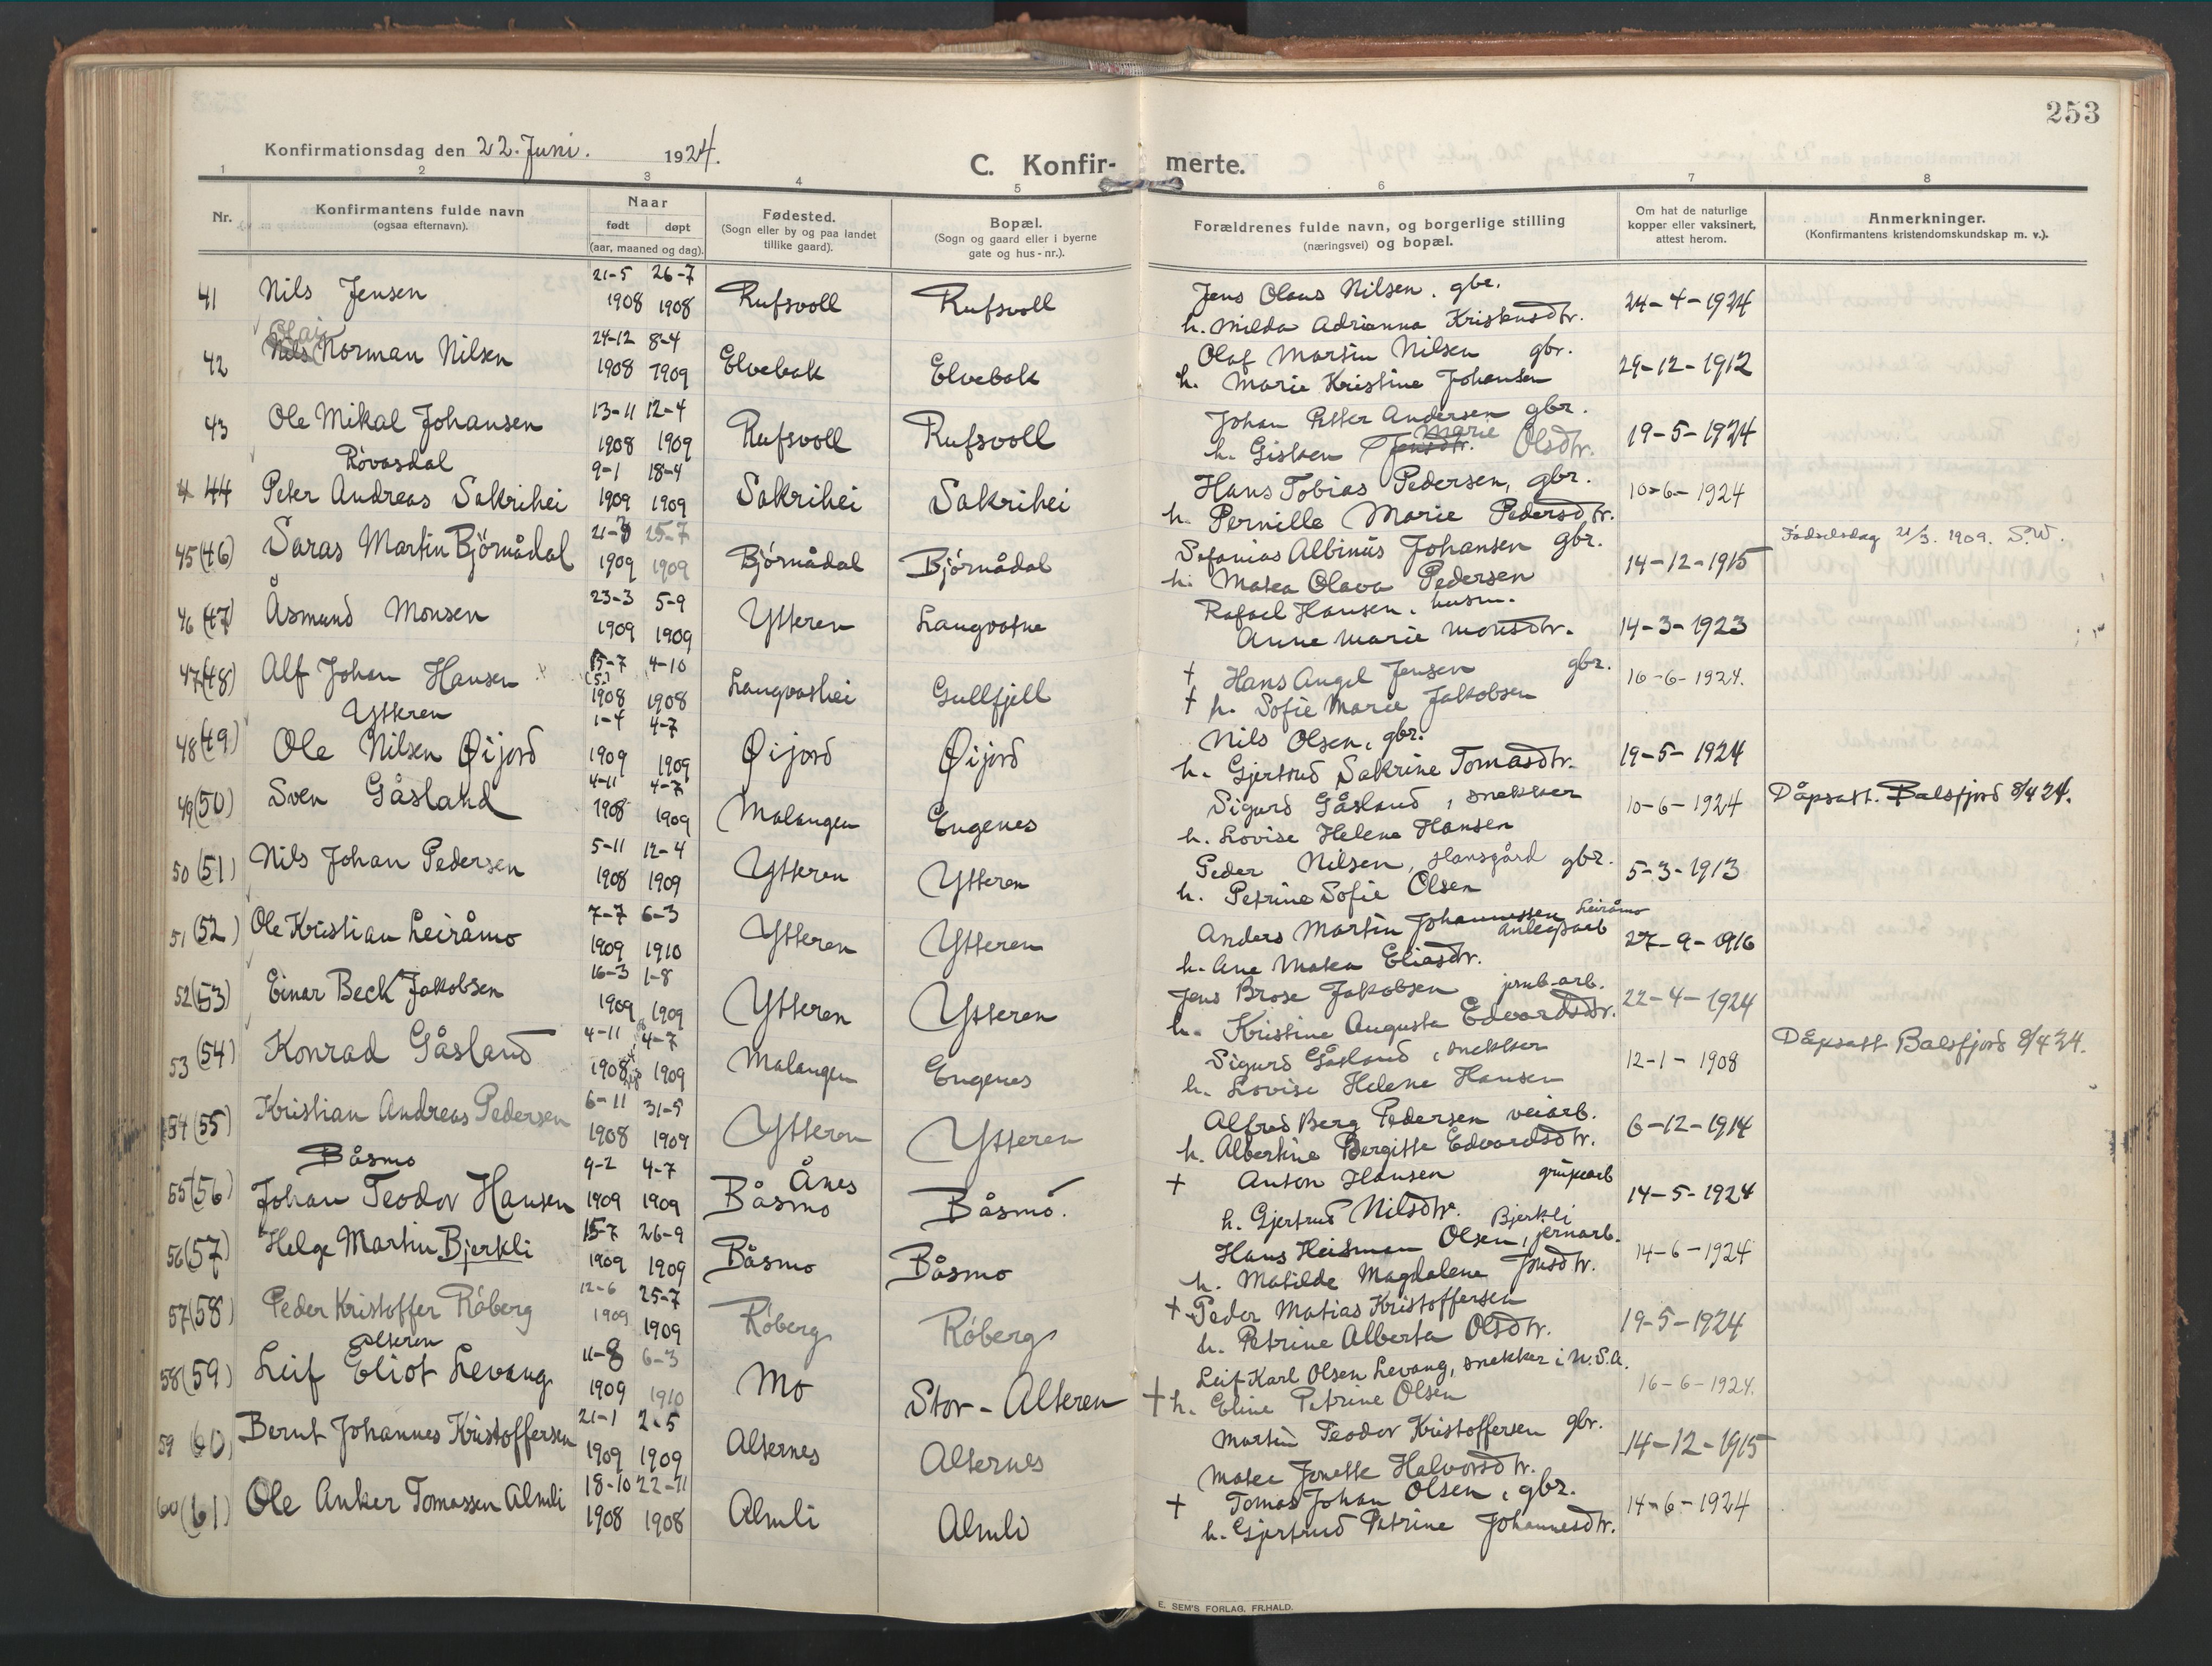 253
Konfirmationsdag den 22. Juni. 1924.
C. Konfir- merte.
1 2 3 4 5 6 7 8
Nr.
Konfirmantens fulde navn
(ogsaa efternavn).
Naar
født døpt
(aar, maaned og dag).
Fødested.
(Sogn eller by og paa landet
tillike gaard).
Bopæl.
(Sogn og gaard eller i byerne
gate og hus-nr.).
Forældrenes fulde navn, og borgerlige stilling
(næringsvei) og bopæl.
Om hat de naturlige
kopper eller vaksinert,
attest herom.
Anmerkninger.
(Konfirmantens kristendomskundskap m. v.).
21-5 26-7 Jens Olaus Nilsen. gbr.
41 Nils Jensen 1908 1908 Rufsvoll Rufsvoll 24-4-1924
h. Milda Adrianna
Olaf
24-12 8-4 Olaf Martin Nilsen gbr.
42 Nils Norman Nilsen 1908 1909 Elvebak Elvebak 29-12-1912
h. Marie Kristine Johansen
13-11 12-4 Johan Petter Andersen gbr.
43 Ole Mikal Johansen 1908 1909 Rufsvoll Rufsvoll 19-5-1924
h. Gisken Jensdtr. Marie Olsdtr.
Róvasdal
9-1 18-4 Hans Tobias Pedersen, gbr.
44 Peter Andreas Sakrihei 1909 1909 Sakrihei Sakrihei 10-6-1924
h. Pernille Marie Pedersdtr.
21-3 25-7 Sofanias Albinus Johansen gbr. Fødselsdag 21/3. 1909. S.W.
45 (46) Saras Martin Bjórnådal 1909 1909 Bjórnådal Bjórnådal 14-12-1915
h. Matea Olava Pedersen
23-3 5-9 Rafael Hansen, husm.
46 (47) Åsmund Monsen 1909 1909 Ytteren Langvatne 14-3-1923
Anne Marie Monsdtr.
15-7 4-10 † Hans Angel Jensen gbr.
47 (48) Alf Johan Hansen (5.) 1908 1908 Langvashei Gullfjell 16-6-1924.
† h. Sofie Marie Jakobsen
Ytteren
1-4 4-7 Nils Olsen, gbr.
48 (49) Ole Nilsen Øijord 1909 1909 Øijord Øijord 19-5-1924
h. Gjertrud Sakrine Tomasdtr.
4-11 4-7 Sigurd Gåsland, snekker
49 (50) Sven Gåsland 1908 1909 Malangen Engenes 10-6-1924 Dåpsatt. Balsfjord 8/4 24.
h. Lovise Helene Hansen
5-11 12-4 Peder Nilsen, Hansgård gbr.
50 (51) Nils Johan Pedersen 1908 1909 Ytteren Ytteren 5-3-1913
h. Petrine Sofie Olsen
7-7 6-3 Anders Martin Johannessen Leiråmo
51 (52) Ole Kristian Leiråmo 1909 1910 Ytteren Ytteren 27-9-1916
h. Ane Matea Eliasdtr.
16-3 1-8 Jens Brose Jakobsen jernb-arb.
52 (53) Einar Beck Jakobsen 1909 1909 Ytteren Ytteren 22-4-1924
h. Kristine Augusta Edvardsdtr.
4-11 4-7 Sigurd Gåsland, snekker
53 (54) Konrad Gåsland 1908 1909 Malangen Engenes 12-1-1908 Dåpsatt Balsfjord 8/4 24.
h. Lovise Helene Hansen
6-11 31-5 Alfred Berg Pedersen veiarb.
54 (55) Kristian Andreas Pedersen 1908 1909 Ytteren Ytteren 6-12-1914
h. Albertine Bergitte Edvardsdtr.
Båsmo
9-2 4-7 Ånes † Anton Hansen grubearb
55 (56) Johan Teodor Hansen 1909 1909 Båsmo Båsmo. 14-5-1924
h. Gjertrud Nilsdtr.
15-7 26-9 Hans Heitman Olsen Bjerkli, jernarb.
56 (57) Helge Martin Bjerkli 1909 1909 Båsmo Båsmo 14-6-1924
h. Matilde Magdalene
12-6 25-7 † Peder Matias Kristoffersen
57 (58) Peder Kristoffer Róberg 1909 1909 Róberg Róberg 19-5-1924
h. Petrine Alberta Olsdtr.
Alteren
11-8 6-3 Leif Karl Olsen Levang, snekker i U.S.A.
58 (59) Leif Eliot Levang 1909 1910 Mo Stor-Alteren 16-6-1924.
† h. Eline Petrine Olsen
21-1 2-5 Martin Teodor Kristoffersen gbr.
59 (60) Bernt Johannes Kristoffersen 1909 1909 Alternes Alternes 14-12-1915
Matea Jonette Halvorsdtr.
18-10 22-11 † Tomas Johan Olsen, gbr.
60 (61) Ole Anker Tomassen Almli 1908 1908 Almli Almli 14-6-1924
h. Gjertrud Petrine Johannesdtr.
E. SEM'S FORLAG, FR.HALD.